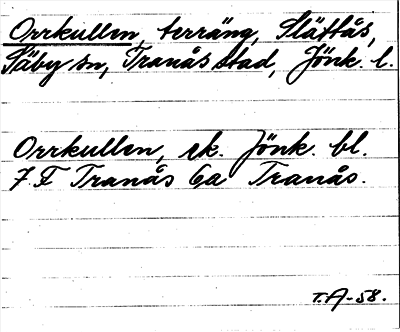 Orrkullen, terräng, Slättås,
Säby sn, Tranås stad, Jönk. l.
Orrkullen, ek. Jönk. bl.
7 F Tranås 6a Tranås.
T.A-58.